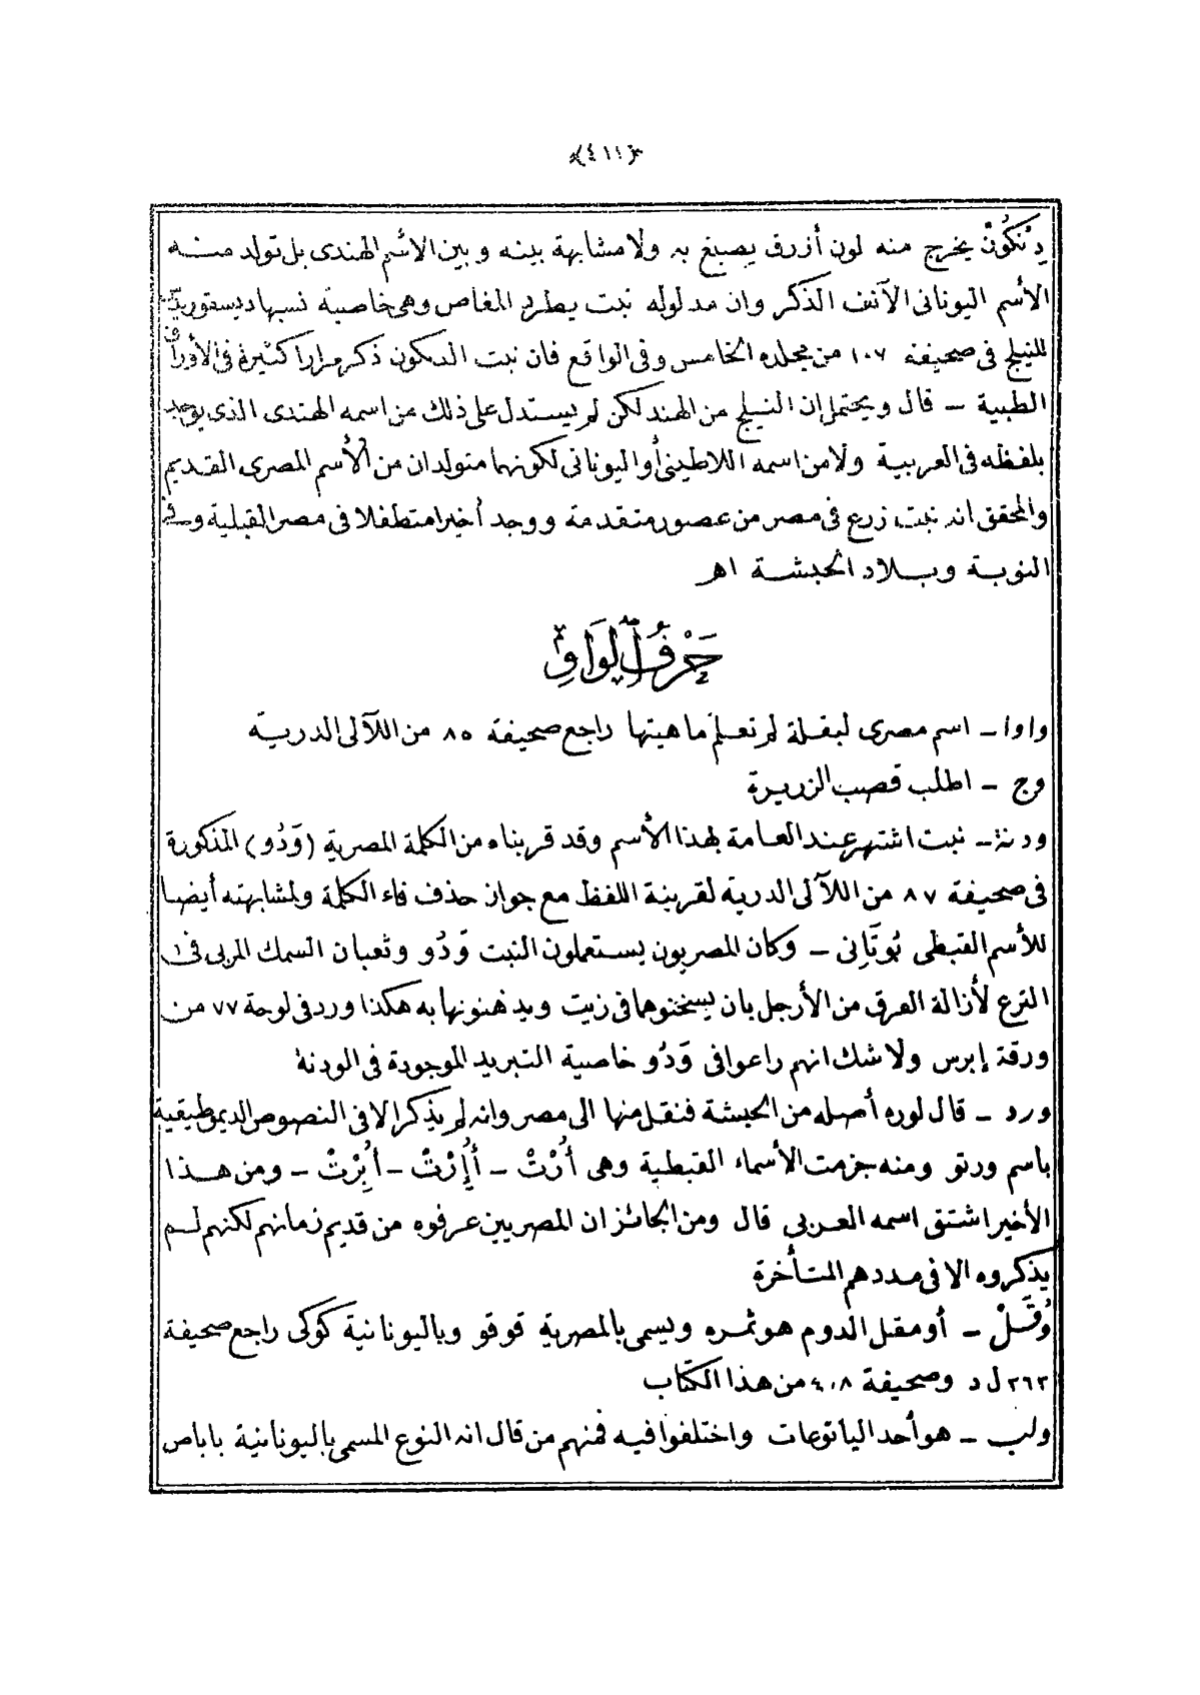 ﴿٤١١﴾
دِنْكُونْ يخرج منه لون أزرق يصبغ به ولا مشابهة بينه وبين الاسم الهندى بل تولد منه
الأسم اليونانى الآنف الذكر وان مدلوله نبت يطرد المغاص وهى خاصية نسبها ديسقوريدس
للنيلج فى صحيفة ١٠٧ من مجلده الخامس وفى الواقع فان نبت الدنكون ذكر مرارا كثيرة فى الأوراق
الطبية – قال ويحتمل إن النيلج من الهند لكن لم يستدل على ذلك من اسمه الهندى الذى يوجد
بلفظه فى العربية ولا من اسمه اللاطينى أو اليونانى لكونهما متولدان من الأسم المصرى القديم
والمحقق انه نبت زرع فى مصر من عصور متقدمة ووجد أخيرا متطفلا فى مصر القبلية وفى
النوبة وبلاد الحبشة اهـ
حَرْفُ الوَاوِ
واوا – اسم مصرى لبقلة لم تعلم ماهيتها راجع صحيفة ٨٥ من اللآلى الدرية
وج – اطلب قصب الزريرة
ودنة – نبت اشتهر عند العامة بهذا الأسم وقد قربناه من الكلمة المصرية (وَدُو) المذكورة
فى صحيفة ٨٧ من اللآلى الدرية لقرينة اللفظ مع جواز حذف فاء الكلمة ولمشابهته أيضا
للأسم القبطى بُوتَانِى – وكان المصريون يستعملون النبت وَدُو وثعبان السمك المربى فى
الترع لأزالة العرق من الأرجل بان يسخنوهما فى زيت ويدهنونها به هكذا ورد فى لوحة ٧٧ من
ورقة إبرس ولا شك انهم راعوا فى وَدُو خاصية التبريد الموجودة فى الودنة
ورد – قال لوره أصله من الحبشة فنقل منها الى مصر وانه لم يذكر الا فى النصوص الديموطيقية
باسم ورتو ومنه جزمت الأسماء القبطية وهى أُرْتْ – أُإِرْتْ – أُبِرْتْ – ومن هذا
الأخير اشتق اسمه العربى قال ومن الجائز ان المصريين عرفوه من قديم زمانهم لكنهم لم
يذكروه الا فى مددهم المتأخرة
وُقَلْ – أو مقل الدوم هو ثمره ويسمى بالمصرية قوقو وباليونانية كوكى راجع صحيفة
٢٦٣ ل د وصحيفة ٤٠٨ من هذا الكتاب
ولب – هو أحد الياتوعات واختلفوا فيه فمنهم من قال انه النوع المسمى باليونانية باباص